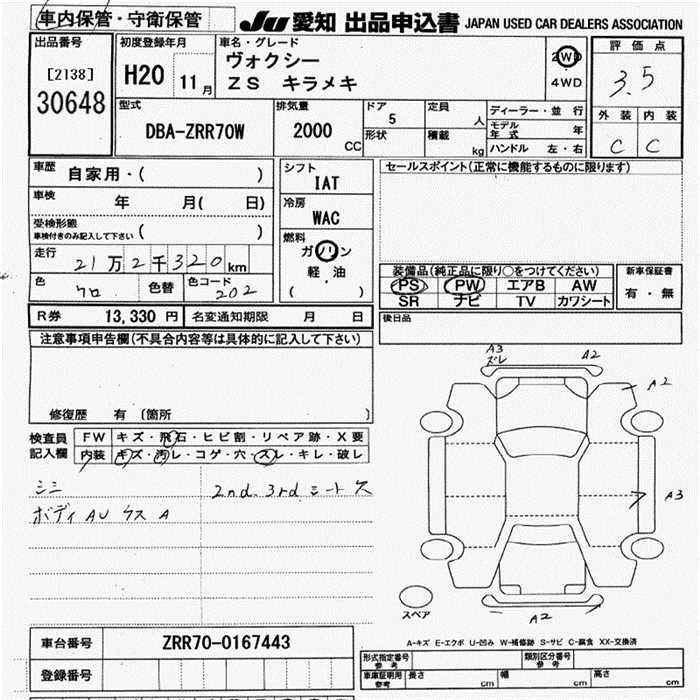 車内保管・守衛保管
JU 愛知 出品申込書 JAPAN USED CAR DEALERS ASSOCIATION
出品番号
[2138]
30648
初度登録年月
H20 11月
車名・グレード
ヴォクシー
ZS キラメキ
2WD
4WD
評価点
3.5
外装 内装
C C
型式
DBA-ZRR70W
排気量
2000 CC
ドア
5
定員
人
形状
積載
kg
ディーラー・並行
モデル年式 年
ハンドル 左・右
車歴 自家用・( )
車検 年 月( 日)
受検形態
車検付きのみ記入して下さい ( )
走行 21万2千320km
色 クロ 色替 色コード 202
シフト
IAT
冷房
WAC
燃料
ガソリン
軽・油
( )
セールスポイント(正常に機能するものに限ります)
装備品(純正品に限り○をつけてください)
PS PW エアB AW
SR ナビ TV カワシート
新車保証書
有・無
R券 13,330 円 名変通知期限 月 日
後日品
注意事項申告欄(不具合内容等は具体的に記入して下さい)
修復歴 有 (箇所 )
検査員記入欄
FW キズ・飛石・ヒビ割・リペア跡・X要
内装 キズ・汚レ・コゲ・穴・スレ・キレ・破レ
シミ 2nd. 3rd シート ス
ボディ AU クス A
A3
ズレ
A2
A2
A3
A2
スペア
A-キズ E-エクボ U-凹み W-補修跡 S-サビ C-腐食 XX-交換済
車台番号 ZRR70-0167443
登録番号
形式指定番号 参考
類別区分番号 参考
車庫証明用 参考 長さ cm 幅 cm 高さ cm